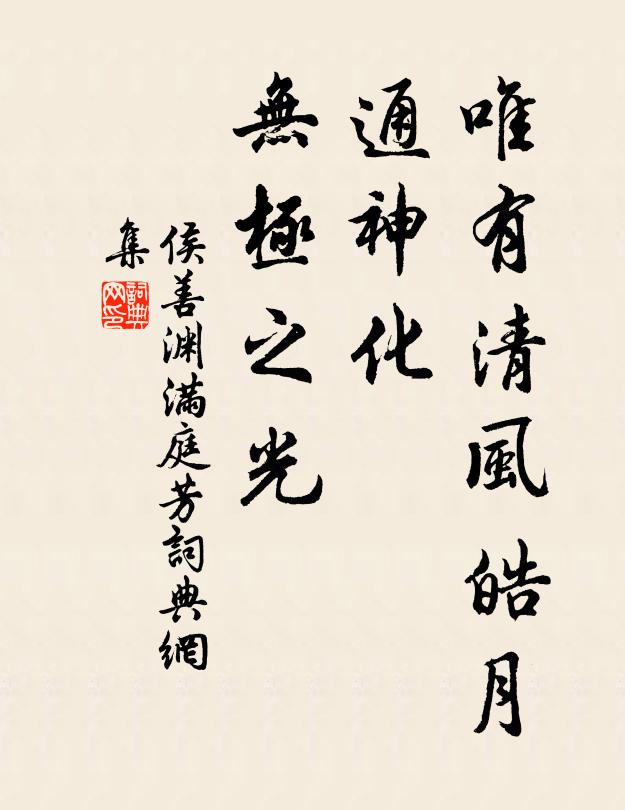 唯有清風皓月
通神化
無極之光
侯善渊滿庭芳詞典網
集
詞典网印